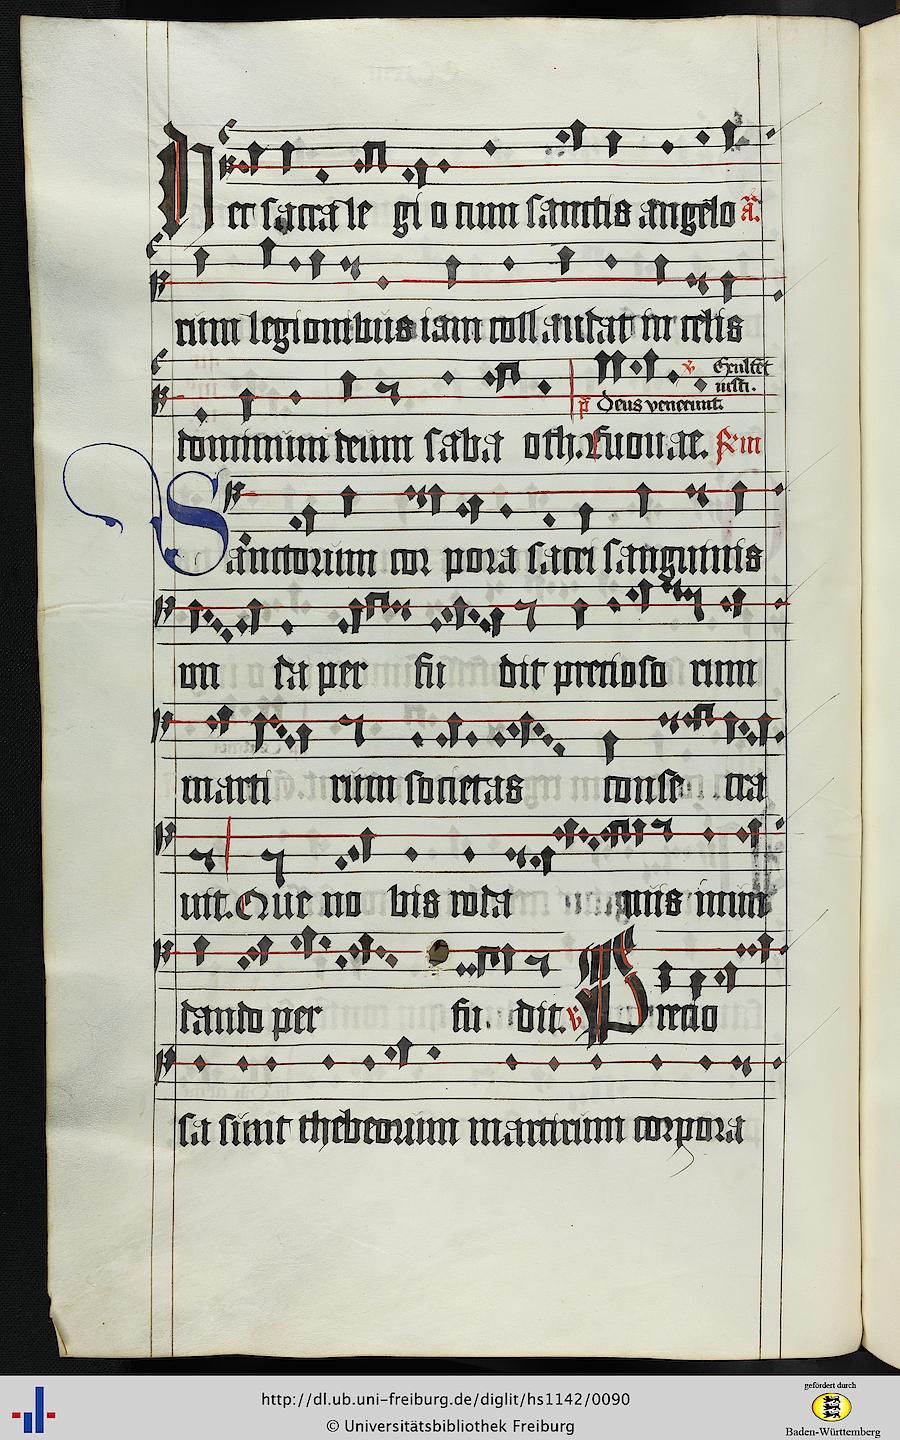 Per sacra le gi o num sanctis angelo A.
rum legionibus iam coll audat in celis
Exultēt
iusti.
Deus venerunt.
dominum deum saba oth. Euouae.
Sanctorum cor pora sacri sanguinis
un da per fu dit precioso rum
marti rum societas conse cra
uit. Que no bis rosa
tando per fu dit. V Precio
sa sunt thebeorum martirum corpora
http://dl.ub.uni-freiburg.de/diglit/hs1142/0090
© Universitätsbibliothek Freiburg
gefördert durch
Baden-Württemberg